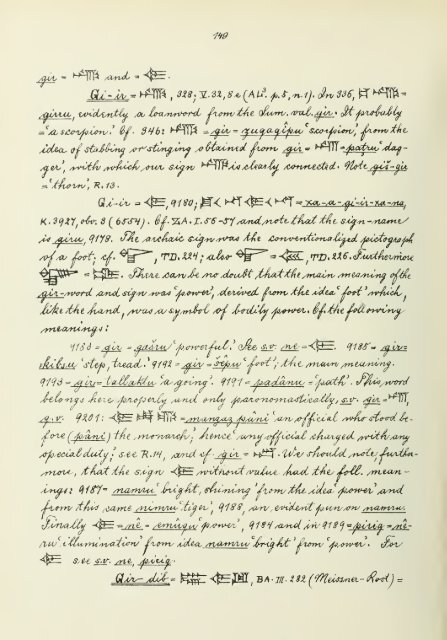 149
gir = and =
Gi-ir = , 328; V. 32, 8e (AL³. p. 8, n. 1). In 336, =
girru, evidently a loanword from the Sum. val. gir. It probably
= 'a scorpion.' Cf. 346: = gir = zuqaqîpu 'scorpion', from the
idea of stabbing or stinging obtained from gir = = patru 'dag-
ger', with which our sign is clearly connected. Note giš-gir
= 'thorn', R. 13.
Gi-ir = , 9180; = xa-a-gi-ir-xa-na,
K. 3927, obv. 8 (6554). Cf. ZA. I. 56-57 and note that the sign-name
is giru, 9178. The archaic sign was the conventionalized pictograph
of a foot; cf. , TD. 224; also = , TD. 226. Furthermore
= . There can be no doubt that the main meaning of the
gir-word and sign was 'power', derived from the idea 'foot' which,
like the hand, was a symbol of bodily power. Cf. the following
meanings:
9183 = gir = gašru 'powerful.' See s.v. ne = . 9185 = gir =
kibsu 'step, tread.' 9192 = gir = šêpu 'foot'; the main meaning.
9193 = gir = tallaktu 'a going.' 9191 = padânu = 'path'. This word
belongs here properly and only paronomastically, s.v. gir = ,
q.v. 9201: = manzaz pâni 'an official who stood be-
fore (pâni) the monarch;' hence 'any official charged with any
special duty; see R. 14, and cf. gir = . We should note, further-
more, that the sign without value had the foll. mean-
ings: 9187 = namru 'bright, shining' from the idea 'power' and
from this same nimru 'tiger', 9188, an evident pun on namru.
Finally = nê = emûqu 'power', 9184 and in 9189 = pirig = nê-
ru 'illumination' from idea namru 'bright' from 'power'. For
see s.v. ne, pirig.
Gir-dib = , BA. III. 282 (Meissner-Rost) =